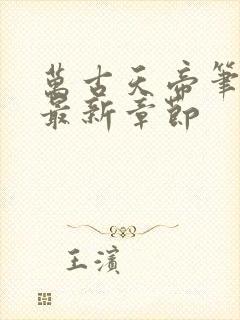 萬古天帝筆
最新章節
王濱